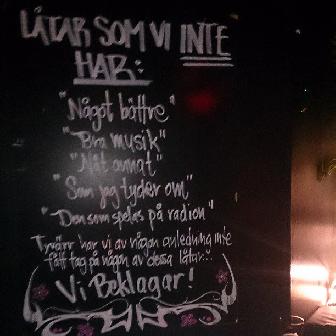 LÅTAR SOM VI INTE
HAR:
"Något bättre"
"Bra musik"
"Nåt annat"
"Som jag tyder om"
"Den som spelas på radion"
Tyvärr har vi av någon anledning inte
fått tag på någon av dessa låtar..
Vi Beklagar!